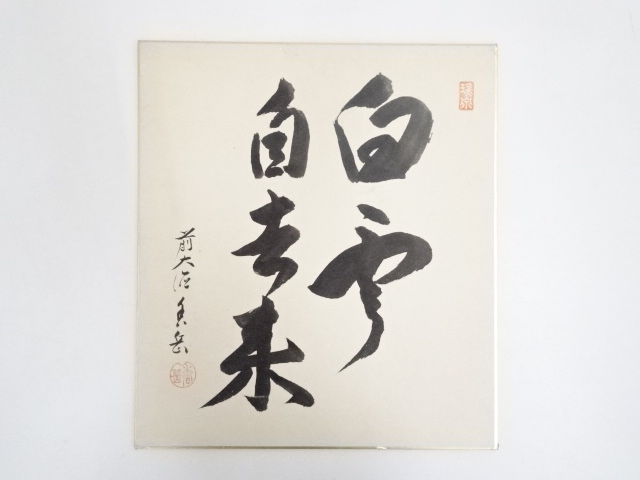 白雲
自去来
前大徳 香岳